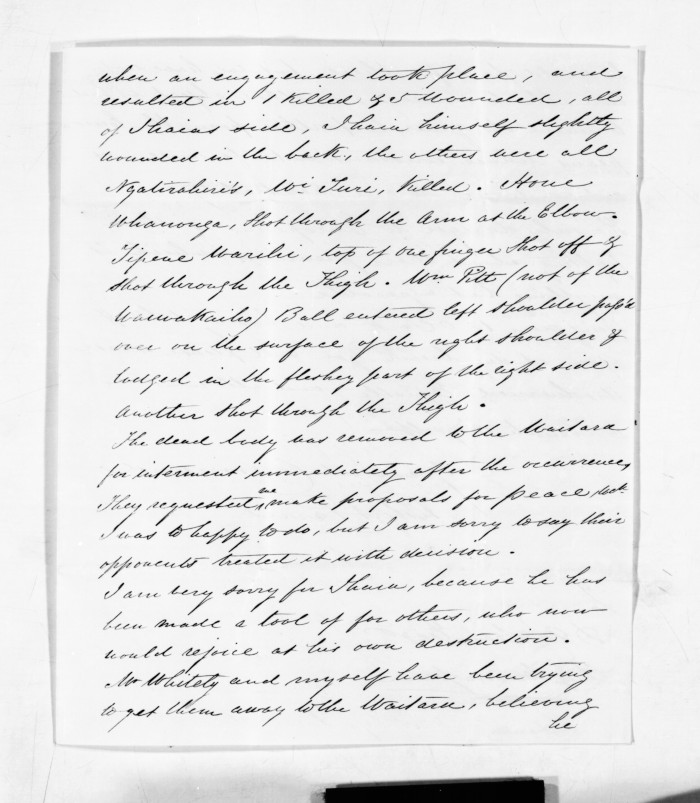 when an engagement took place, and
resulted in 1 Killed & 5 Wounded, all
of Ihaias side, Ihaia himself slightly
wounded in the back, the others were all
Ngatirahiri's, Wi Turi, Killed. Hone
Whanonga, Shot through the Arm at the Elbow.
Tipene Warihi, top of one finger Shot off &
Shot through the Thigh. Wm Pitt (not of the
Waiwakaiho) Ball entered left Shoulder pass'd
over on the surface of the right shoulder &
lodged in the fleshey part of the right side.
Another Shot through the Thigh.
The dead body was removed to the Waitara
for interment immediately after the occurrence,
They requested me make proposals for peace wch
I was to happy to do, but I am sorry to say their
opponents treated it with derision.
I am very sorry for Ihaia, because he has
been made a tool of for others, who now
would rejoice at his own destruction.
Mr Whitely and myself have been trying
to get them away to the Waitara, believing
he